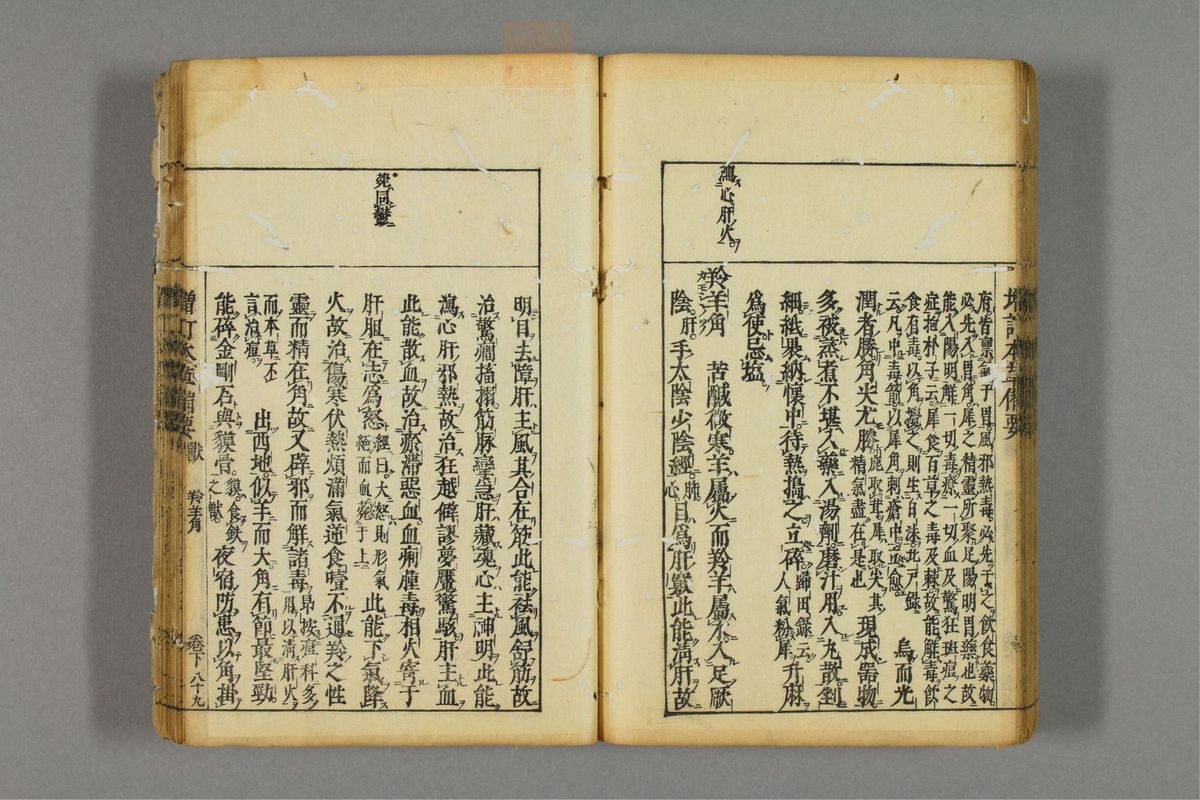 瀉心肝火
府皆禀氣于胃風邪熱毒必先干之飲食藥物
必先入胃角犀之精靈所聚足陽明胃藥也故
能入陽明解一切毒療一切血及驚狂斑痘之
症抱朴子云犀食百草之毒及棘故能解毒飲
食有毒以角攪之則生白沫北戸録
云凡中毒箭以犀角刺瘡中立愈 烏而光
潤者勝角尖尤勝鹿取茸犀取尖其精氣盡在是也 現成器物
多被蒸煮不堪入藥入湯劑磨汁用入丸散剉
細紙裹納懷中待熱搗之立碎歸田録云人氣粉犀 升麻
爲使忌塩
羚羊角 苦鹹微寒羊屬火而羚羊屬木入足厥
陰肝手太陰少陰經肺心目爲肝竅此能清肝故
宛同鬱
明目去障肝主風其合在筋此能祛風舒筋故
治驚癇搐搦筋脉攣急肝藏魂心主神明此能
瀉心肝邪熱故治狂越僻謬夢魘驚駭肝主血
此能散血故治瘀滯惡血血痢腫毒相火寄于
肝胆在志爲怒經曰大怒則形氣絕而血菀于上 此能下氣降
火故治傷寒伏熱煩滿氣逆食噎不通羚之性
靈而精在角故又辟邪而解諸毒昂按痘科多用以清肝火
而本草不言治痘 出西地似羊而大角有節最堅勁
能碎金剛石與貘骨貘食鉄之獸 夜宿防患以角掛
獸 羚羊角 卷下 八十九